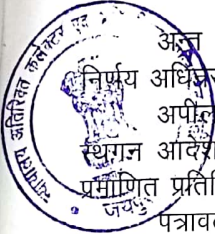 अन्त
निर्णय अधि
अपील
स्थगन आदेश
प्रमाणित प्रति
पत्राव
न्यायालय अतिरिक्त कलेक्टर एवं
जयपु